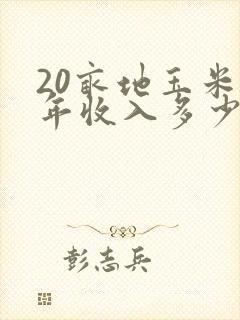 20亩地玉米
年收入多少
彭志兵